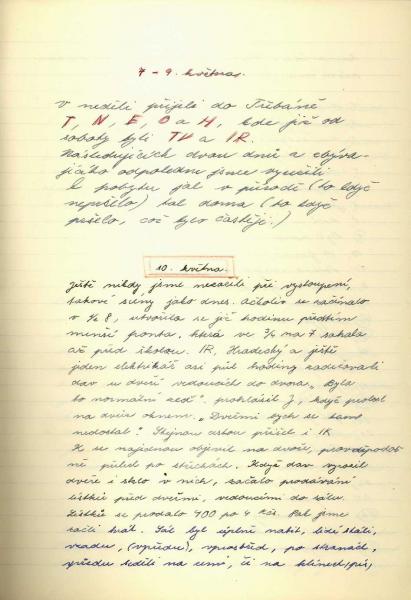 7 – 9. května.
V neděli přijeli do Třebáně
T, N, E, O a H, kde již od
soboty byli TV a IR.
Následujících dvou dnů a zbýva-
jícího odpoledne jsme využili
k pobytu jak v přírodě (to když
nepršelo) tak doma (to když
pršelo, což bylo častěji.)
10. května.
Ještě nikdy jsme nezažili při vystoupení,
takové scény jako dnes. Ačkoliv se začínalo
v ½ 8, utvořila se již hodinu předtím
menší fronta, která ve ¾ na 7 sahala
až před školou. IR, Hradecký a ještě
jeden elektrikář asi půl hodiny zadržovali
dav u dveří vedoucích do dvora. „Byla
to normální zeď“, prohlásil J, když prolezl
na dvůr oknem. „Dveřmi bych se tam
nedostal“. Stejnou cestou přišel i K.
H se najednou objevil na dvoře, pravděpodob
ně přilet po střechách. Když dav vyrazil
dveře i sklo v nich, začalo prodávání
lístků před dveřmi, vedoucími do sálu.
Lístků se prodalo 400 po 4 Kčs. Pak jsme
začli hrát. Sál byl úplně nabit, lidé stáli,
vzadu, (vpředu), uprostřed, po stranách,
vpředu seděli na zemi, či na klínech (píš)